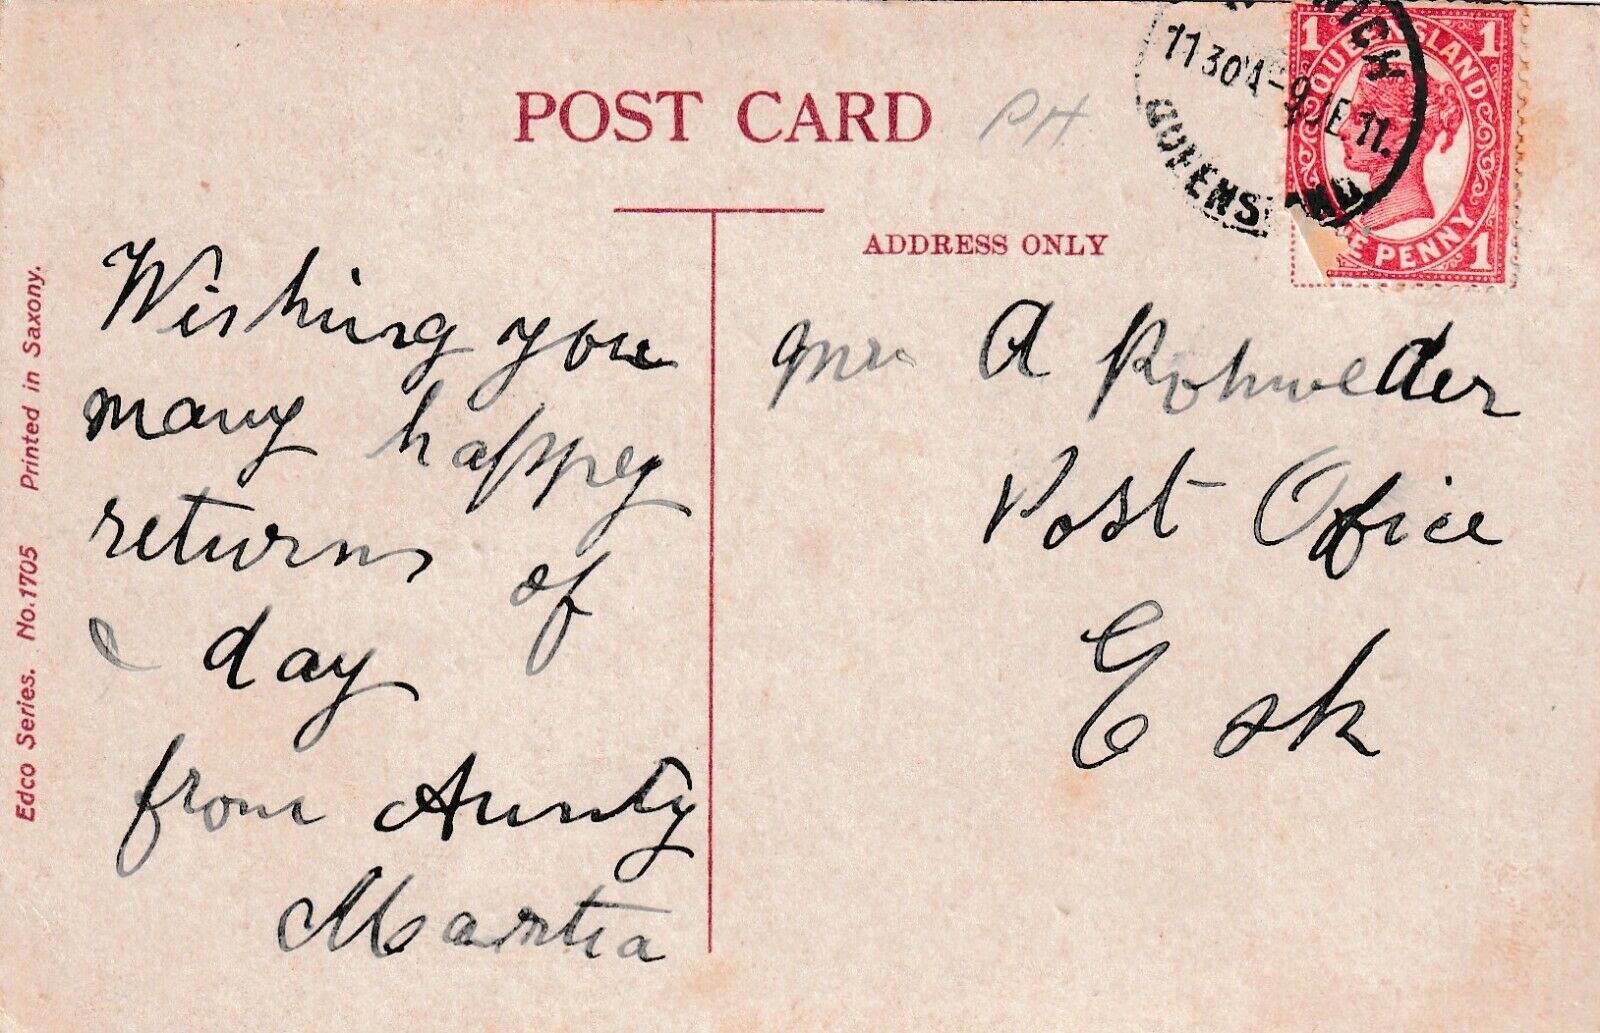 POST CARD
PH
WICH
1130A-9JE11.
QUEENSLAND
1 1
QUEENSLAND
E PENNY 1
ADDRESS ONLY
Edco Series. No. 1705 Printed in Saxony.
Wishing you
many happey
returns of
day
from Aunty
Martia
Mrs A Rohweder
Post Office
Esk